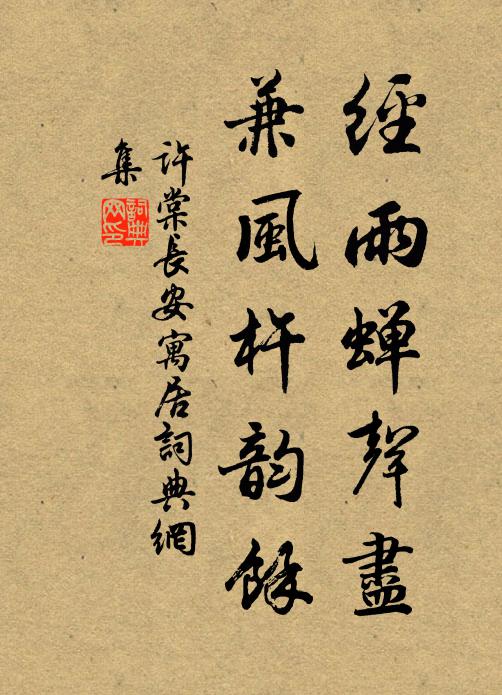 經雨蟬聲盡
兼風杵韵餘
許棠長安寓居詞典網
集
詞典
网印